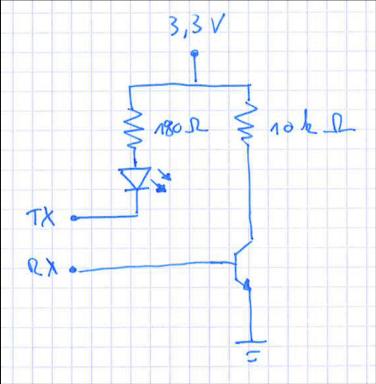 3,3 V
180Ω 10k Ω
TX
RX